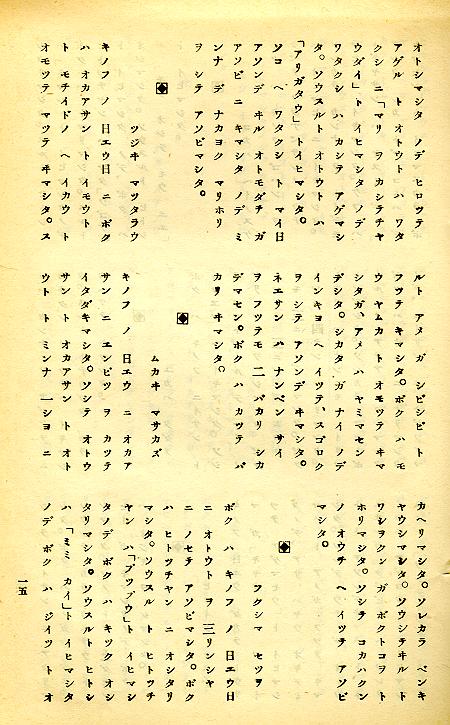 オトシマシタ ノデ ヒロツテ
アゲル ト オトウト ハ ワタ
クシ ニ「マリ ヲ カシテチヤ
ウダイ」ト イヒマシタ ノデ
ワタクシ ハ カシテ アゲマシ
タ。ソウスルト オトウト ハ
「アリガタウ」 トイヒマシタ。
ソコ ヘ ワタクシ ト マイ日
アソンデ ヰル オトモダチ ガ
アソビ ニ キマシタ ノデ ミ
ンナ デ ナカヨク マリホリ
ヲ シテ アソビマシタ。
ツジヰ マツタラウ
キノフ ノ 日エウ日 ニ ボク
ハ オカアサン ト イモウト
ト モチイドノ ヘ イカウ ト
オモツテ マツテ ヰマシタ。ス
ルト アメ ガ シビシビ ト
フツテ キマシタ。ボク ハ モ
ウ ヤムカ ト オモツテ ヰマ
シタガ、アメ ハ ヤミマセン
デシタ。シカタ ガ ナイ ノデ
インキヨ ヘ イツテ、スゴロク
ヲ シテ アソンデ ヰマシタ。
ネエサン ハ ナンベン サイ
ヲ フツテモ 二 バカリ シカ
デマセン。ボク ハ カツテ バ
カリ ヰマシタ。
ムカキ マサカズ
キノフ ノ 日エウ ニ オカア
サン ニ エンピツ ヲ カツテ
イタダキマシタ。ソシテ オトウ
サント オカアサン ト オト
ウト ト ミンナ 一シヨ ニ
カヘリマシタ。ソレカラ ベンキ
ヤウシマシタ。ソウシテヰルト
ワシヲクン ガ ボクトコヲ ト
ホリマシタ。ソシテ コカハクン
ノ オウチ ヘ イツテ アソビ
マシタ。
フクシマ セツヲ
ボク ハ キノフ ノ 日エウ日
ニ オトウト ヲ 三リンシヤ
ニ ノセテ アソビマシタ。ボク
ハ ヒトツチヤン ニ オシタリ
マシタ。ソウスル ト ヒトツチ
ヤン ハ「ブツブウ」ト イヒマシ
タノデ ボク ハ キツク オシ
タリマシタ。ソウスルト ヒトシ
ハ 「ミミ カイ」ト イヒマシタ
ノデ ボク ハ ジイツ ト オ
一五